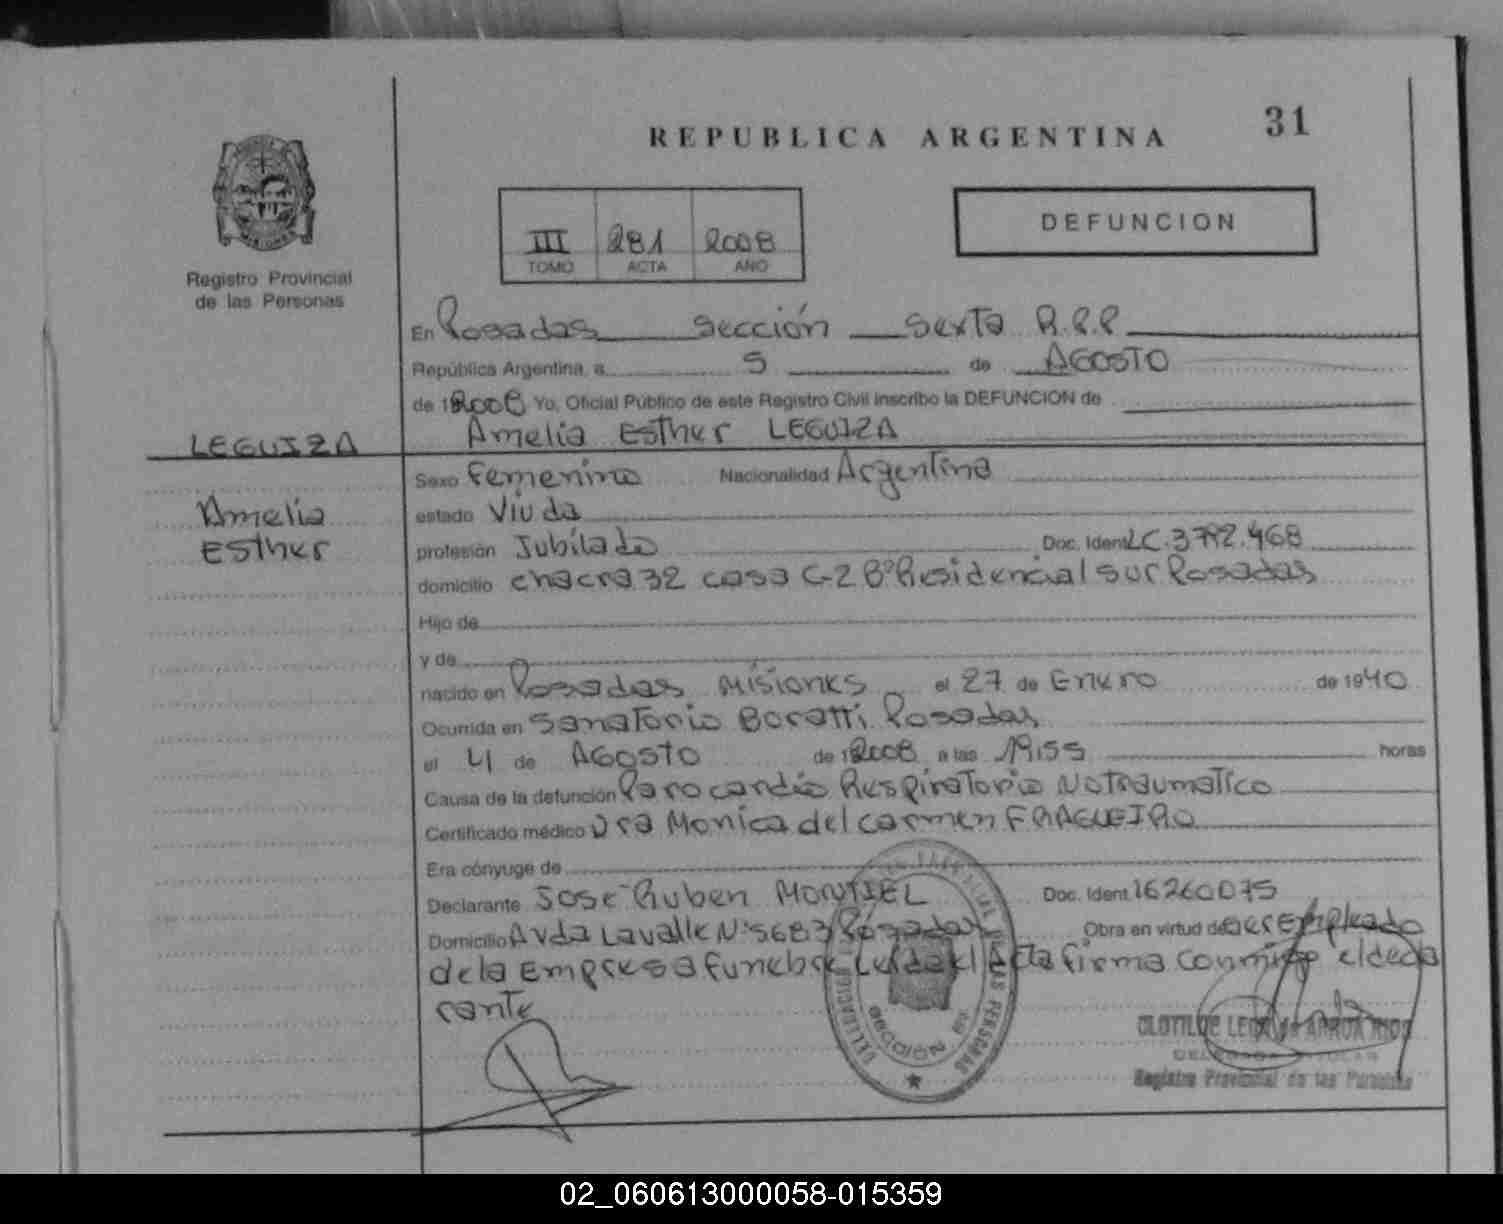 31
REPUBLICA ARGENTINA
MISIONES
Registro Provincial
de las Personas
III 281 2008
TOMO ACTA AÑO
DEFUNCION
En Posadas sección sexta R.P.P
República Argentina, a 5 de AGOSTO
de 12008 Yo, Oficial Público de este Registro Civil inscribo la DEFUNCION de
Amelia Esther LEGUIZA
LEGUIZA
Amelia
Esther
Sexo Femenino Nacionalidad Argentina
estado Viuda
profesión Jubilada Doc. Ident. LC.3792.468
domicilio chacra 32 casa C-2 Bº Residencial sur Posadas
Hijo de
y de
nacido en Posadas Misiones el 27 de Enero de 1940
Ocurrida en Sanatorio Boratti Posadas
el 4 de AGOSTO de 12008 a las 19,55 horas
Causa de la defunción Paro cardio Respiratorio No traumatico
Certificado médico Dra Monica del carmen FRAGUEIRO
Era cónyuge de
Declarante Jose Ruben MONTIEL Doc. Ident. 16260075
Domicilio Avda Lavalle Nº 5683 Posadas Obra en virtud de ser Empleado
de la Empresa funebre Leida el Acta firma conmigo el decla
rante
SECCION
CLOTILDE ARRUA RIOS
DELEGADA TITULAR
Registro Provincial de las Personas
02_060613000058-015359